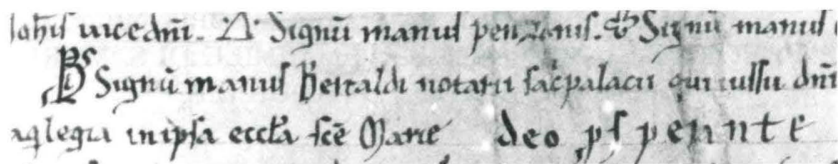 ioh̄is uicedn̄i. Signū manus penzonis. Signū manus
Signū manus Bertaldi notarii sac̄ palacii qui iussu dn̄i
aq̄legia in ipsa eccl̄a sc̄e Marie deo